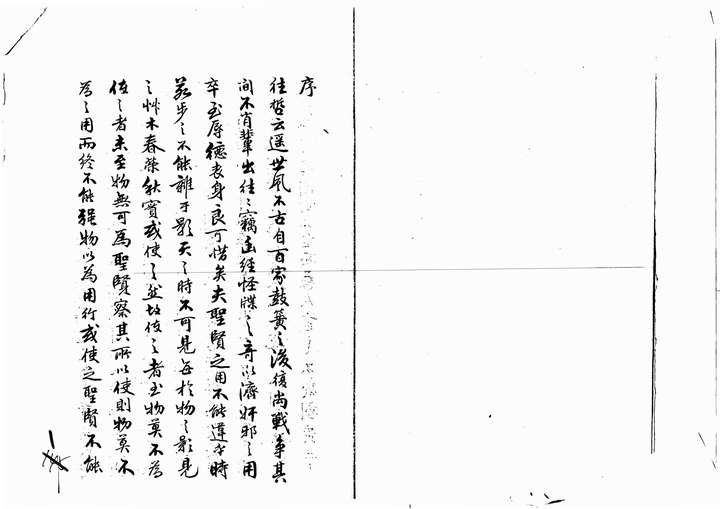 序
往哲云遥世風不古自百家鼓簧之後復尚戰事其
間不肖輩出往々竊至經怪牒々之奇以濟奸邪之用
卒至辱德喪身良可惜矣夫聖賢之用不能違乎時
若步之不能離乎影天之時不可見每於物之影見
之草木春榮秋實或使之然故使之者至物莫不為
使之者未至物無可為聖賢察其所以使則物莫不
為之用而終不能強物以為用行或使之聖賢不能